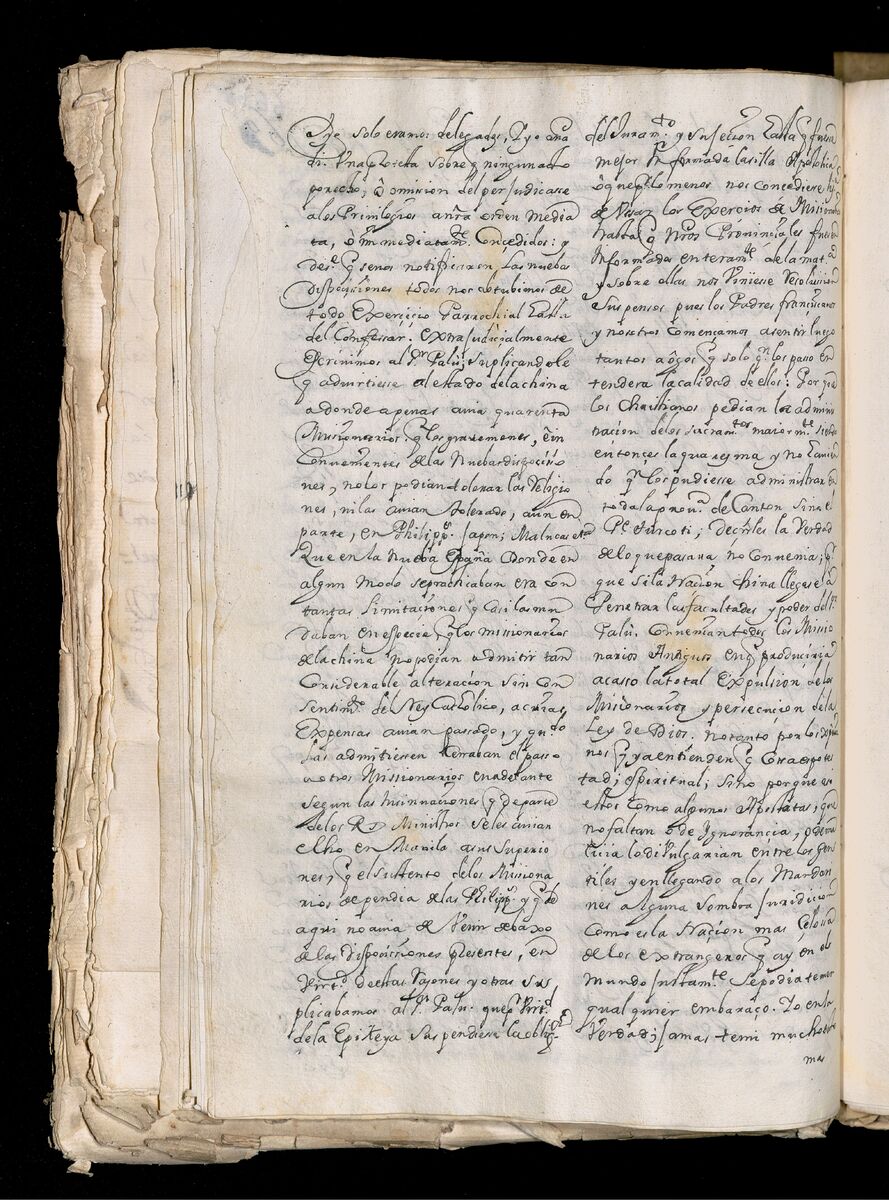 solo eramos delegados, y yo aña
di una protesta sobre q ningun acto
por echo, ô omision del perjudicasse
a los Privilegios a nrã orden media
ta, ô immediatamte Concedidos: y
desde q se nos notificaron las nuebas
disposiciones todos nos abstubimos de
todo Exercicio Parrochial hasta
del Confessar. extrajudicialmente
escrivimos al Sr Palù, suplicandole
q advirtiesse al estado de la china
a donde apenas avia quarenta
Missionarios q los gravamenes, è in
Convenientes de las Nuebas disposicio
nes, no los podian tolerar las Religio
nes, ni las avian tolerado, aun en
parte, en Philippas Japon, Malucas etca
Que en la Nueba España donde en
algun modo se practicaban era con
tantas limitaciones y casi las mu
daban en especie, q los missionarios
de la china no podian admitir tan
Considerable alteracion sin con
sentimto del Rey Catholico, a cuias
Expensas avian passado, y quando
las admitiessen cerraban el passo
a otros Missionarios en adelante
segun las insinuaciones q de parte
de los Rs Ministros se les avian
echo en Manila a sus Superio
res, q el sustento de los Missiona
rios dependia de las Philippas y q de
aqui no avia de Venir debaxo
de las disposiciones presentes, en
Virtd de estas Razones y otras su
plicabamos al Sr Palu. que pr Virtd
de la Epikeya suspendiera la oblig
del Juramto y sujecion hasta q fuera
mejor Informada la silla Apostolica
ô que pr lo menos nos concediese
de Vssar los Exercicios de Missionarios
hasta q Nros Provinciales fuesen
Informados enteramte de la mata
y sobre ellas nos Viniese Resolucion
Suspensos pues los Padres franciscanos
y nosotros Començamos a sentir luego
tantos aogos q solo qn los passo en
tendera la calidad de ellos: Por que
los Christianos pedian la adminis
tracion de los sacramtos maiormte siendo
entonces la quaresma y no havien
do qn los pudiesse administrar en
toda la prova de Canton sino el
Pe Turcoti, decirles la Verdad
de lo que passava no convenia, pr
que si la Nacion china llegese â
Penetrar las facultades y poder del Sr
Palù. Convenian todos los Missio
narios Antiguos en q produciria
acasso la total Expulsion de los
Missionarios y persecucion de la
Ley de Dios. no tanto por los
nos q ya entienden q cossa es potes
tad, espiritual, sino porque en
estos Como algunos Apostatas, que
no faltan ô de Ignorancia, ô de ma
licia lo divulgarian entre los Gen
tiles y en llegando a los Mandari
nes alguna sombra Juridicion
Como es la Nacion mas celossa
de los extrangeros q ay en el
mundo Justamte se podia temer
qualquier embaraço. Yo en la
Verdad, jamas temi mucho
mas